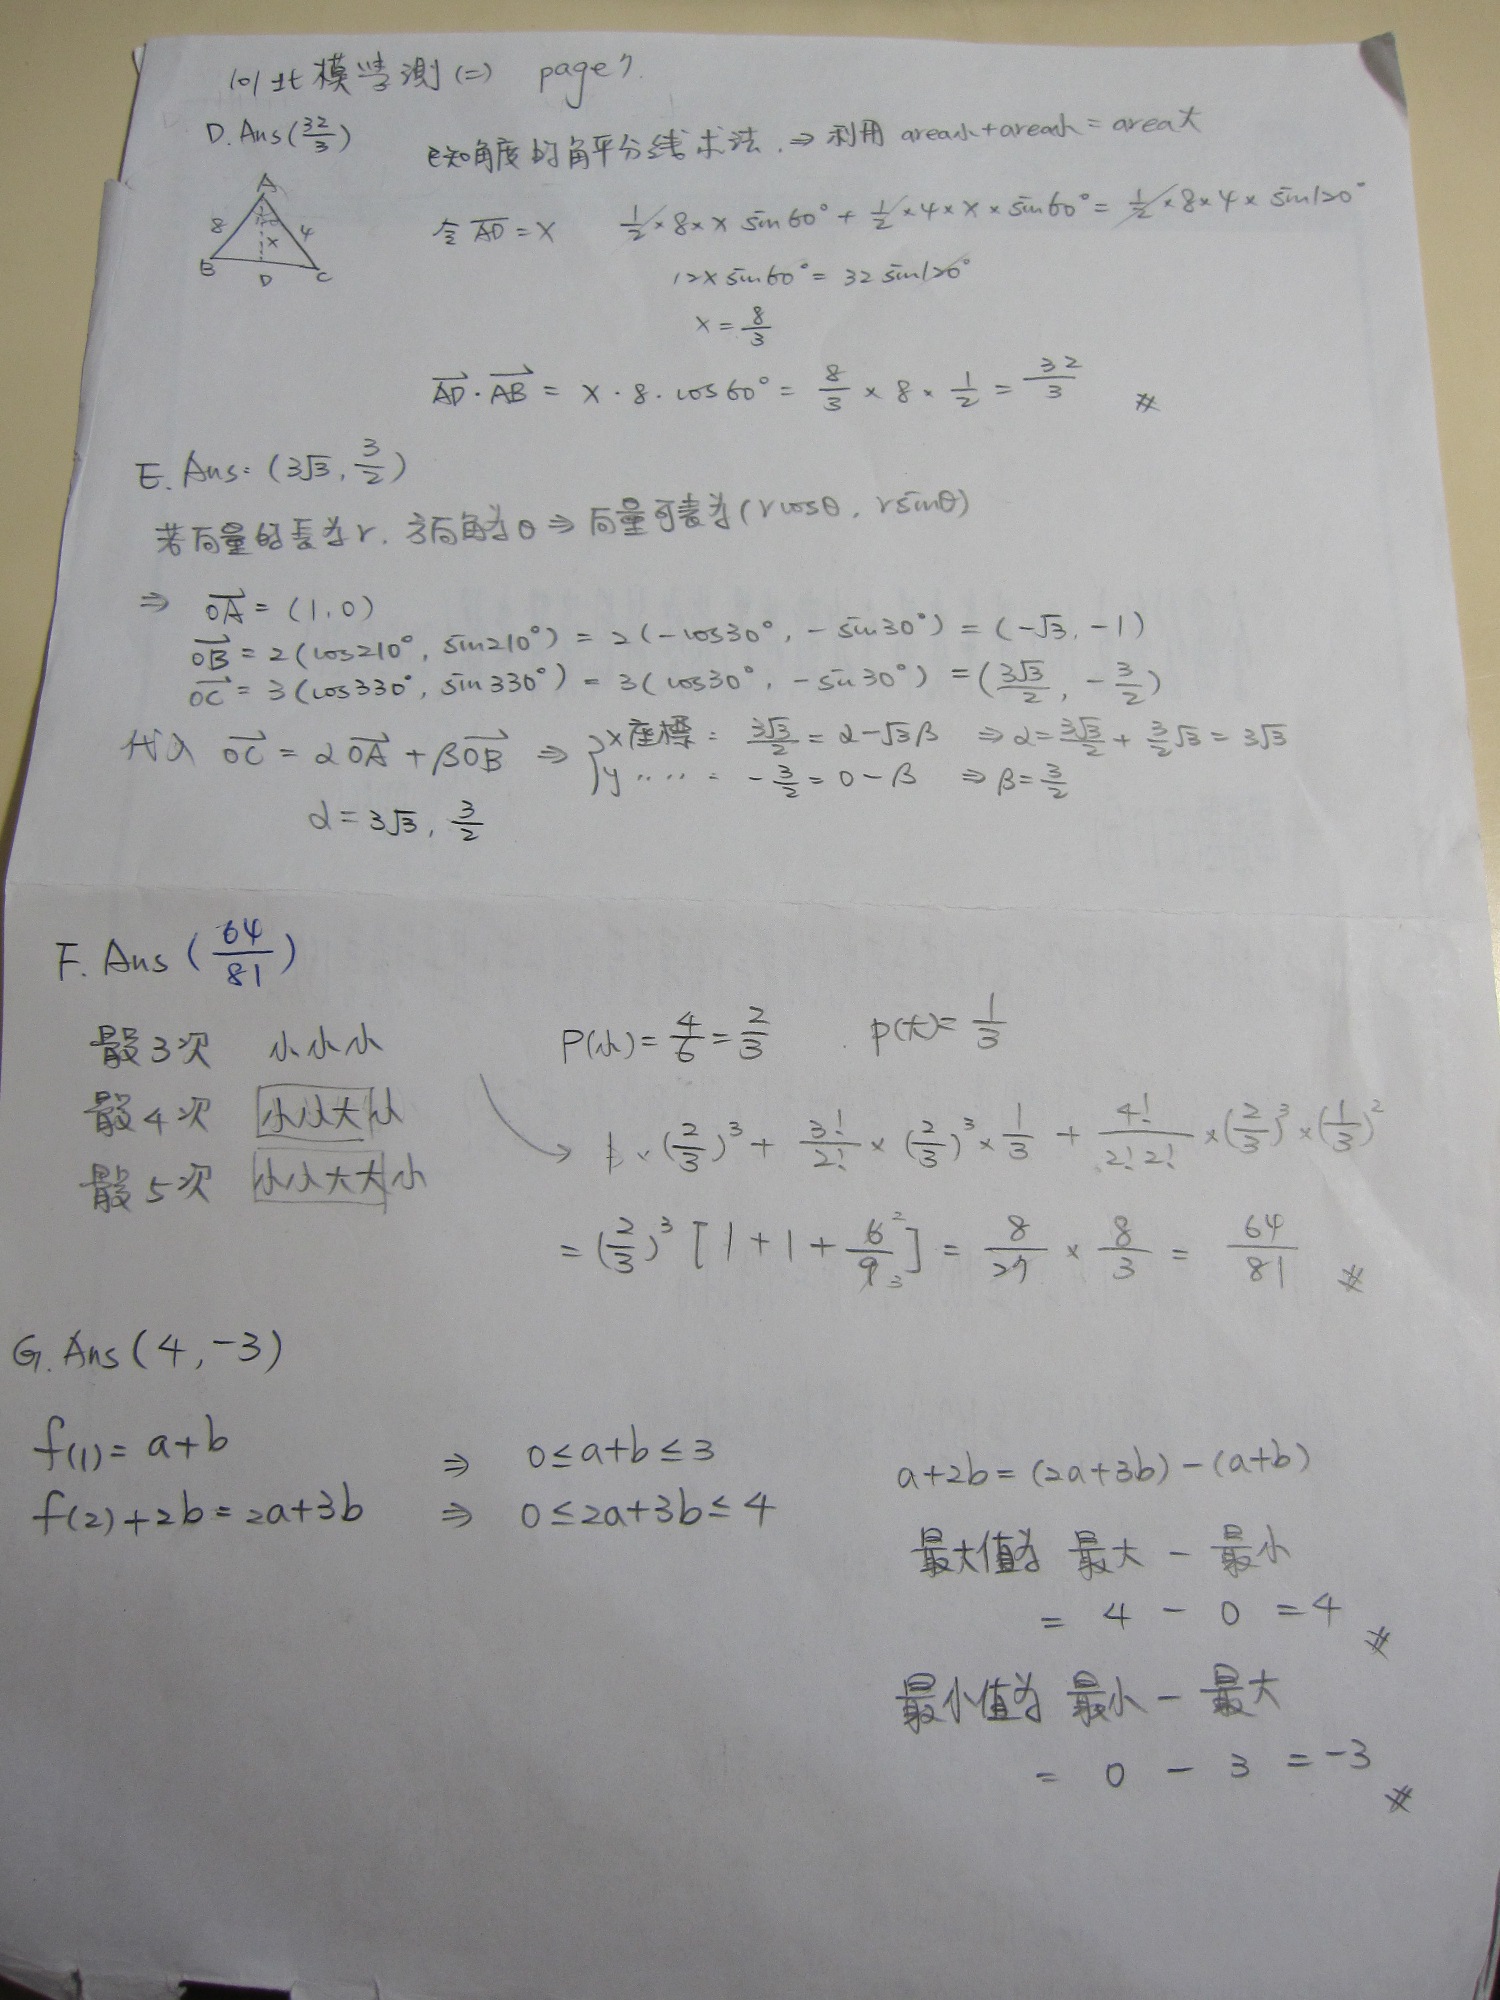 101北模學測(二) page7.
D. Ans(32/3)
已知角度的角平分線求法. ⇒ 利用 area小+area小=area大
A
8 4
x
B D C
令 AD = x 1/2×8×x sin60° + 1/2×4×x×sin60° = 1/2×8×4×sin120°
12x sin60° = 32 sin120°
x = 8/3
AD·AB = x·8·cos60° = 8/3 × 8 × 1/2 = 32/3 #
E. Ans: (3√3, 3/2)
若向量的長為r, 方向角為θ ⇒ 向量可表為(rcosθ, rsinθ)
⇒ OA = (1,0)
OB = 2(cos210°, sin210°) = 2(-cos30°, -sin30°) = (-√3, -1)
OC = 3(cos330°, sin330°) = 3(cos30°, -sin30°) = (3√3/2, -3/2)
代入 OC = αOA + βOB ⇒ { x座標: 3√3/2 = α-√3β ⇒ α = 3√3/2 + 3/2√3 = 3√3
y ‥‥: -3/2 = 0-β ⇒ β = 3/2
α = 3√3, 3/2
F. Ans (64/81)
骰3次 小小小 P(小) = 4/6 = 2/3 . p(大) = 1/3
骰4次 小小大小
→ 1×(2/3)³ + 3!/2! × (2/3)³ × 1/3 + 4!/2!2! × (2/3)³ × (1/3)²
骰5次 小小大大小
= (2/3)³ [1+1+6/9] = 8/27 × 8/3 = 64/81 #
G. Ans(4,-3)
f(1) = a+b ⇒ 0≤a+b≤3
a+2b = (2a+3b)-(a+b)
f(2)+2b = 2a+3b ⇒ 0≤2a+3b≤4
最大值為 最大 - 最小
= 4 - 0 = 4 #
最小值為 最小 - 最大
= 0 - 3 = -3 #